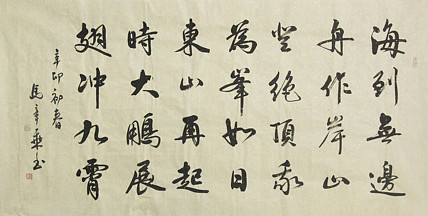 海到無邊
舟作岸山
登絶頂我
為峯如日
東山再起
時大鵬展
翅冲九霄
辛卯初春
馬